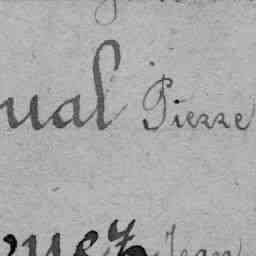 ual Pierre
uez Jean